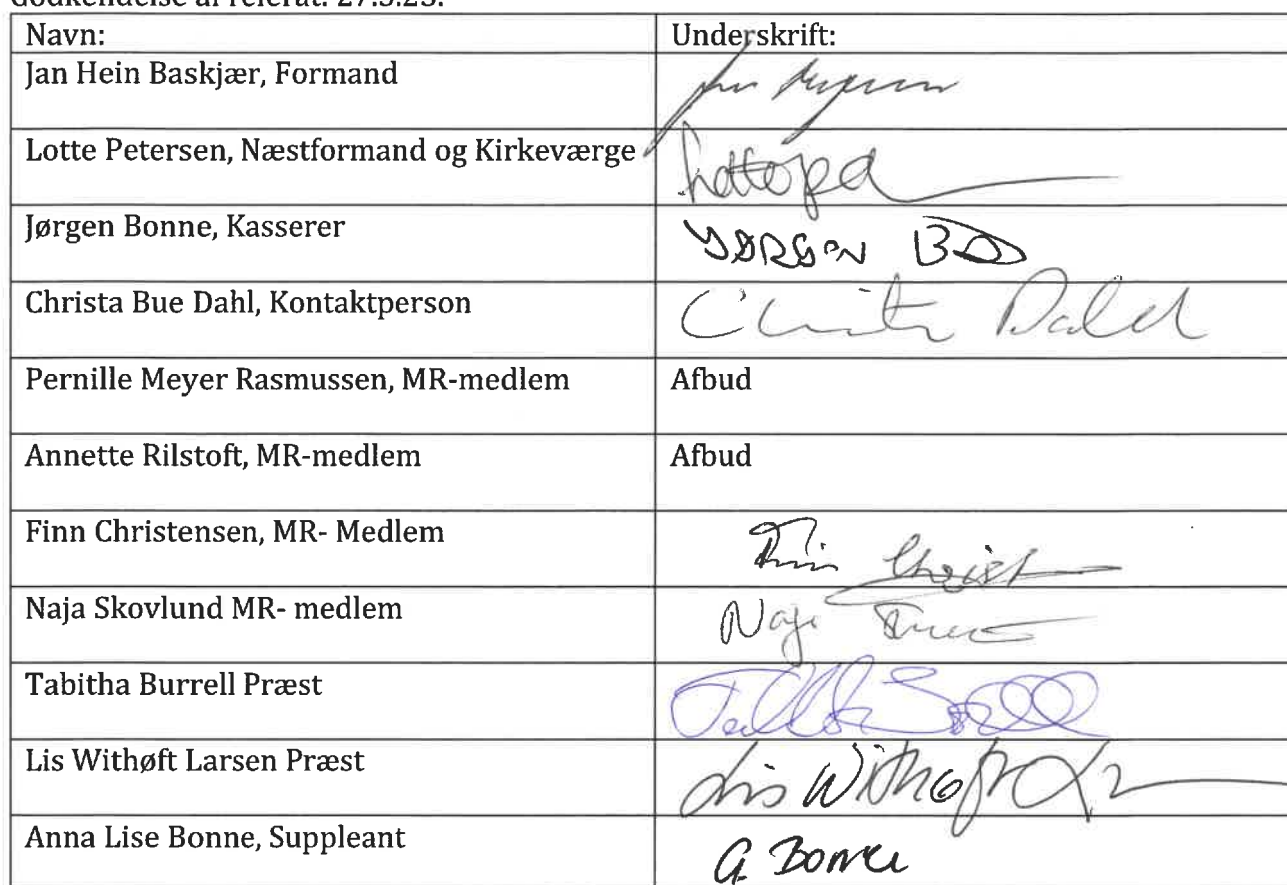 Godkendelse af referat: 27.3.23.
Navn: Underskrift:
Jan Hein Baskjær, Formand
Lotte Petersen, Næstformand og Kirkeværge
Jørgen Bonne, Kasserer JØRGEN
Christa Bue Dahl, Kontaktperson Christa Dahl
Pernille Meyer Rasmussen, MR-medlem Afbud
Annette Rilstoft, MR-medlem Afbud
Finn Christensen, MR- Medlem Finn Christ
Naja Skovlund MR- medlem Naja
Tabitha Burrell Præst
Lis Withøft Larsen Præst Lis Withøft
Anna Lise Bonne, Suppleant A Bonne